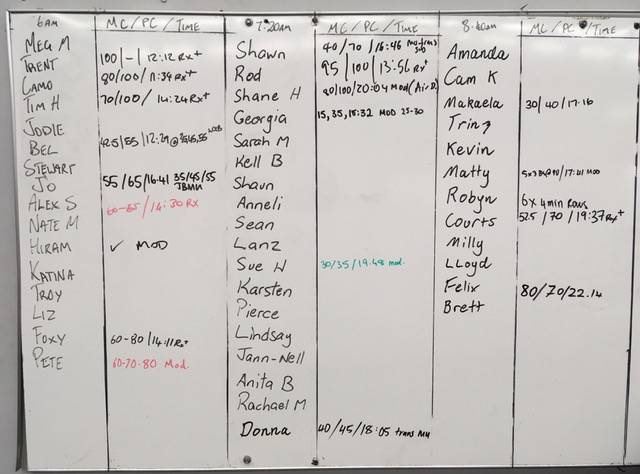 6am MC/PC/TIME
MEG M
TRENT 100/-/12:12 Rx+
CAMO 80/100/11:34 Rx+
TIM H 70/100/14:24 Rx+
JODIE
BEL 42.5/55/12:29@35,45,55
STEWART
JO 55/65/16:41 35/45/55
ALEX S 60-65/14:30 Rx
NATE M
HIRAM ✓ MOD
KATINA
TROY
LIZ
FOXY 60-80/14:11 Rx+
PETE 60-70-80 Mod.
7:20am MC/PC/TIME
Shawn 40/70/16:46
Rod 95/100/13:56 Rx+
Shane H 80/100/20:04 Mod (Air D)
Georgia 15,35,18:32 MOD 25-30
Sarah M
Kell B
Shaun
Anneli
Sean
Lanz
Sue W 30/35/19.48 mod.
Karsten
Pierce
Lindsay
Jann-Nell
Anita B
Rachael M
Donna 40/45/18:05 trans mu
8:40am MC/PC/TIME
Amanda
Cam K
Makaela 30/40/17.16
Trina
Kevin
Matty 5x3 @90/17:41 MOD
Robyn 6x 4min Rows
Courts 52.5/70/19:37 Rx+
Milly
LLoyd
Felix 80/70/22.14
Brett